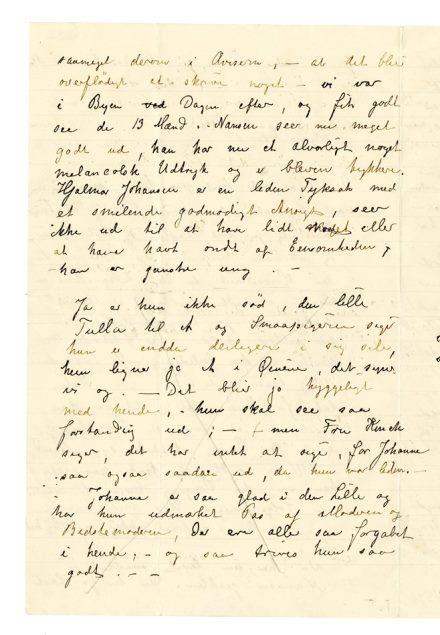 saameget derom i Aviserne, – at det blir
overflödigt at skrive noget – vi var
i Byen ved Dagen efter, og fik godt
see de 13 Mænd. – Nansen seer nu meget
godt ud, han har nu et alvorligt noget
melancolsk Udtryk og er bleven tykkere.
Hjalmar Johansen er en liden Tyksak med
et smilende godmodigt Ansigt, seer
ikke ud til at have lidt meget eller
at have havt ondt af Eensomheden,
han er ganske ung. –
Ja er hun ikke söd, den lille
Tulla til A og Smaapigerne siger
hun er endda deiligere i sig selv,
hun ligner jo A i Öinene, det synes
vi og. – Det blir jo hyggeligt
med hende, – hun skal see saa
forstandig ud; – men Fru Kinck
siger, det har intet at sige, for Johanne
saa ogsaa saadan ud, da hun var liden. –
– Johanne er saa glad i den Lille og
har hun udmærket Pas af Moderen og
Bedstemoderen, der ere alle saa forgabet
i hende; – og saa trives hun saa
godt. – –